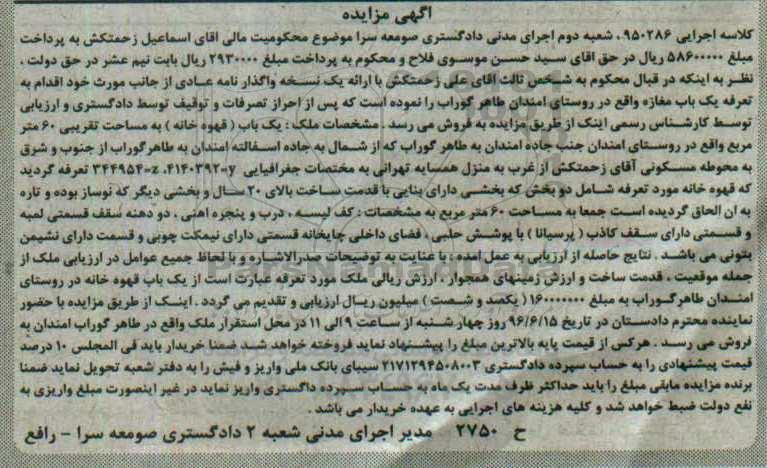 آگهی مزایده
کلاسه اجرایی ۹۵۰۲۸۶ ، شعبه دوم اجرای مدنی دادگستری صومعه سرا موضوع محکومیت مالی آقای اسماعیل زحمتکش به پرداخت
مبلغ ۵۸۶۰۰۰۰۰ ریال در حق آقای سید حسن موسوی فلاح و محکوم به پرداخت مبلغ ۲۹۳۰۰۰۰ ریال بابت نیم عشر در حق دولت ،
نظر به اینکه در قبال محکوم به شخص ثالث آقای علی زحمتکش با ارائه یک نسخه واگذار نامه عادی از جانب مورث خود اقدام به
تعرفه یک باب مغازه واقع در روستای امندان طاهر گوراب را نموده است که پس از احراز تصرفات و توقیف توسط دادگستری و ارزیابی
توسط کارشناس رسمی اینک از طریق مزایده به فروش می رسد . مشخصات ملک : یک باب ( قهوه خانه ) به مساحت تقریبی ۶۰ متر
مربع واقع در روستای امندان جنب جاده امندان به طاهر گوراب که از شمال به جاده اسفالته امندان به طاهرگوراب از جنوب و شرق
به محوطه مسکونی آقای زحمتکش از غرب به منزل همسایه تهرانی به مختصات جغرافیایی y=۴۱۴۰۳۹۲، z=۳۴۴۹۵۴ تعرفه گردید
که قهوه خانه مورد تعرفه شامل دو بخش که بخشی دارای بنایی با قدمت ساخت بالای ۲۰ سال و بخشی دیگر که نوساز بوده و تازه
به ان الحاق گردیده است جمعا به مساحت ۶۰ متر مربع به مشخصات : کف لیسه ، درب و پنجره آهنی ، دو دهنه سقف قسمتی لمبه
و قسمتی دارای سقف کاذب ( پرسیانا ) با پوشش حلبی ، فضای داخلی چایخانه قسمتی دارای نیمکت چوبی و قسمت دارای نشیمن
بتونی می باشد . نتایج حاصله از ارزیابی به عمل امده : با عنایت به توضیحات صدرالاشاره و با لحاظ جمیع عوامل در ارزیابی ملک از
جمله موقعیت ، قدمت ساخت و ارزش زمینهای همجوار ، ارزش ریالی ملک مورد تعرفه عبارت است از یک باب قهوه خانه در روستای
امندان طاهرگوراب به مبلغ ۱۶۰۰۰۰۰۰۰ ( یکصد و شصت ) میلیون ریال ارزیابی و تقدیم می گردد . اینک از طریق مزایده با حضور
نماینده محترم دادستان در تاریخ ۹۶/۶/۱۵ روز چهارشنبه از ساعت ۹ الی ۱۱ در محل استقرار ملک واقع در طاهر گوراب امندان به
فروش می رسد . هرکس از قیمت پایه بالاترین مبلغ را پیشنهاد نماید فروخته خواهد شد ضمنا خریدار باید فی المجلس ۱۰ درصد
قیمت پیشنهادی را به حساب سپرده دادگستری ۲۱۷۱۲۹۴۵۰۸۰۰۳ سیبای بانک ملی واریز و فیش را به دفتر شعبه تحویل نماید ضمنا
برنده مزایده مابقی مبلغ را باید حداکثر ظرف مدت یک ماه به حساب سپرده داگستری واریز نماید در غیر اینصورت مبلغ واریزی به
نفع دولت ضبط خواهد شد و کلیه هزینه های اجرایی به عهده خریدار می باشد .
ح ۲۷۵۰ مدیر اجرای مدنی شعبه ۲ دادگستری صومعه سرا – رافع